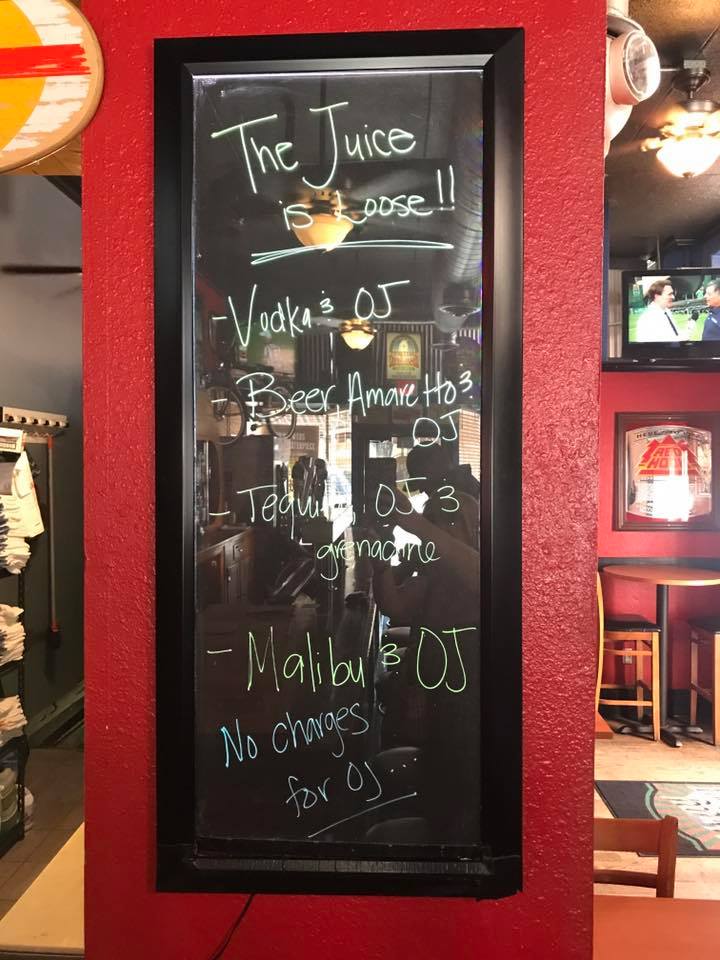 The Juice
is Loose!!
- Vodka & OJ
- Beer, Amaretto &
OJ
- Tequila, OJ &
grenadine
- Malibu & OJ
No charges
for OJ....